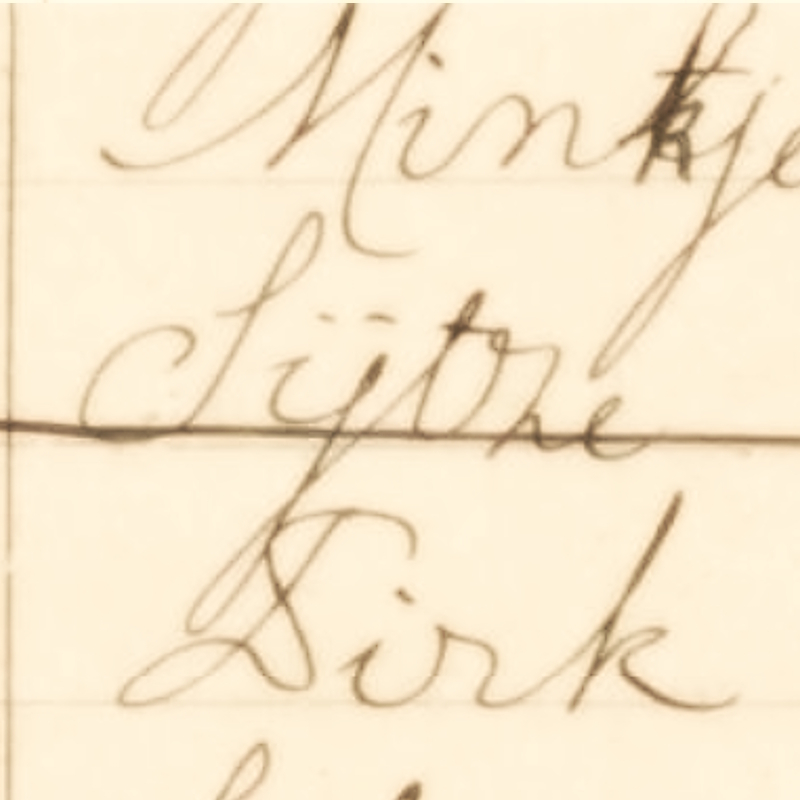 Minkje
Sijtske
Dirk